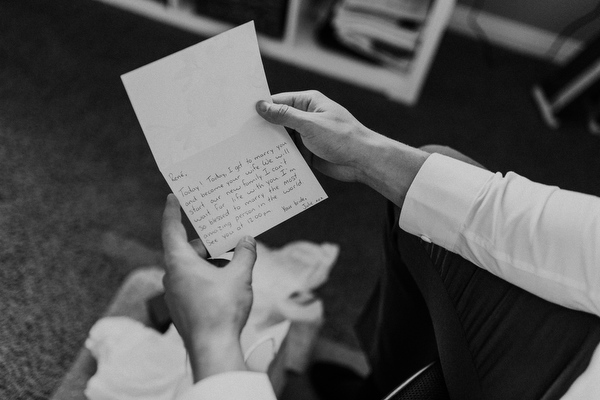 Today! Today, I get to marry you
and become your wife. We will
start our new family. I can't
wait for life with you. I'm
so blessed to marry the most
amazing person in the world.
See you at 12:00pm